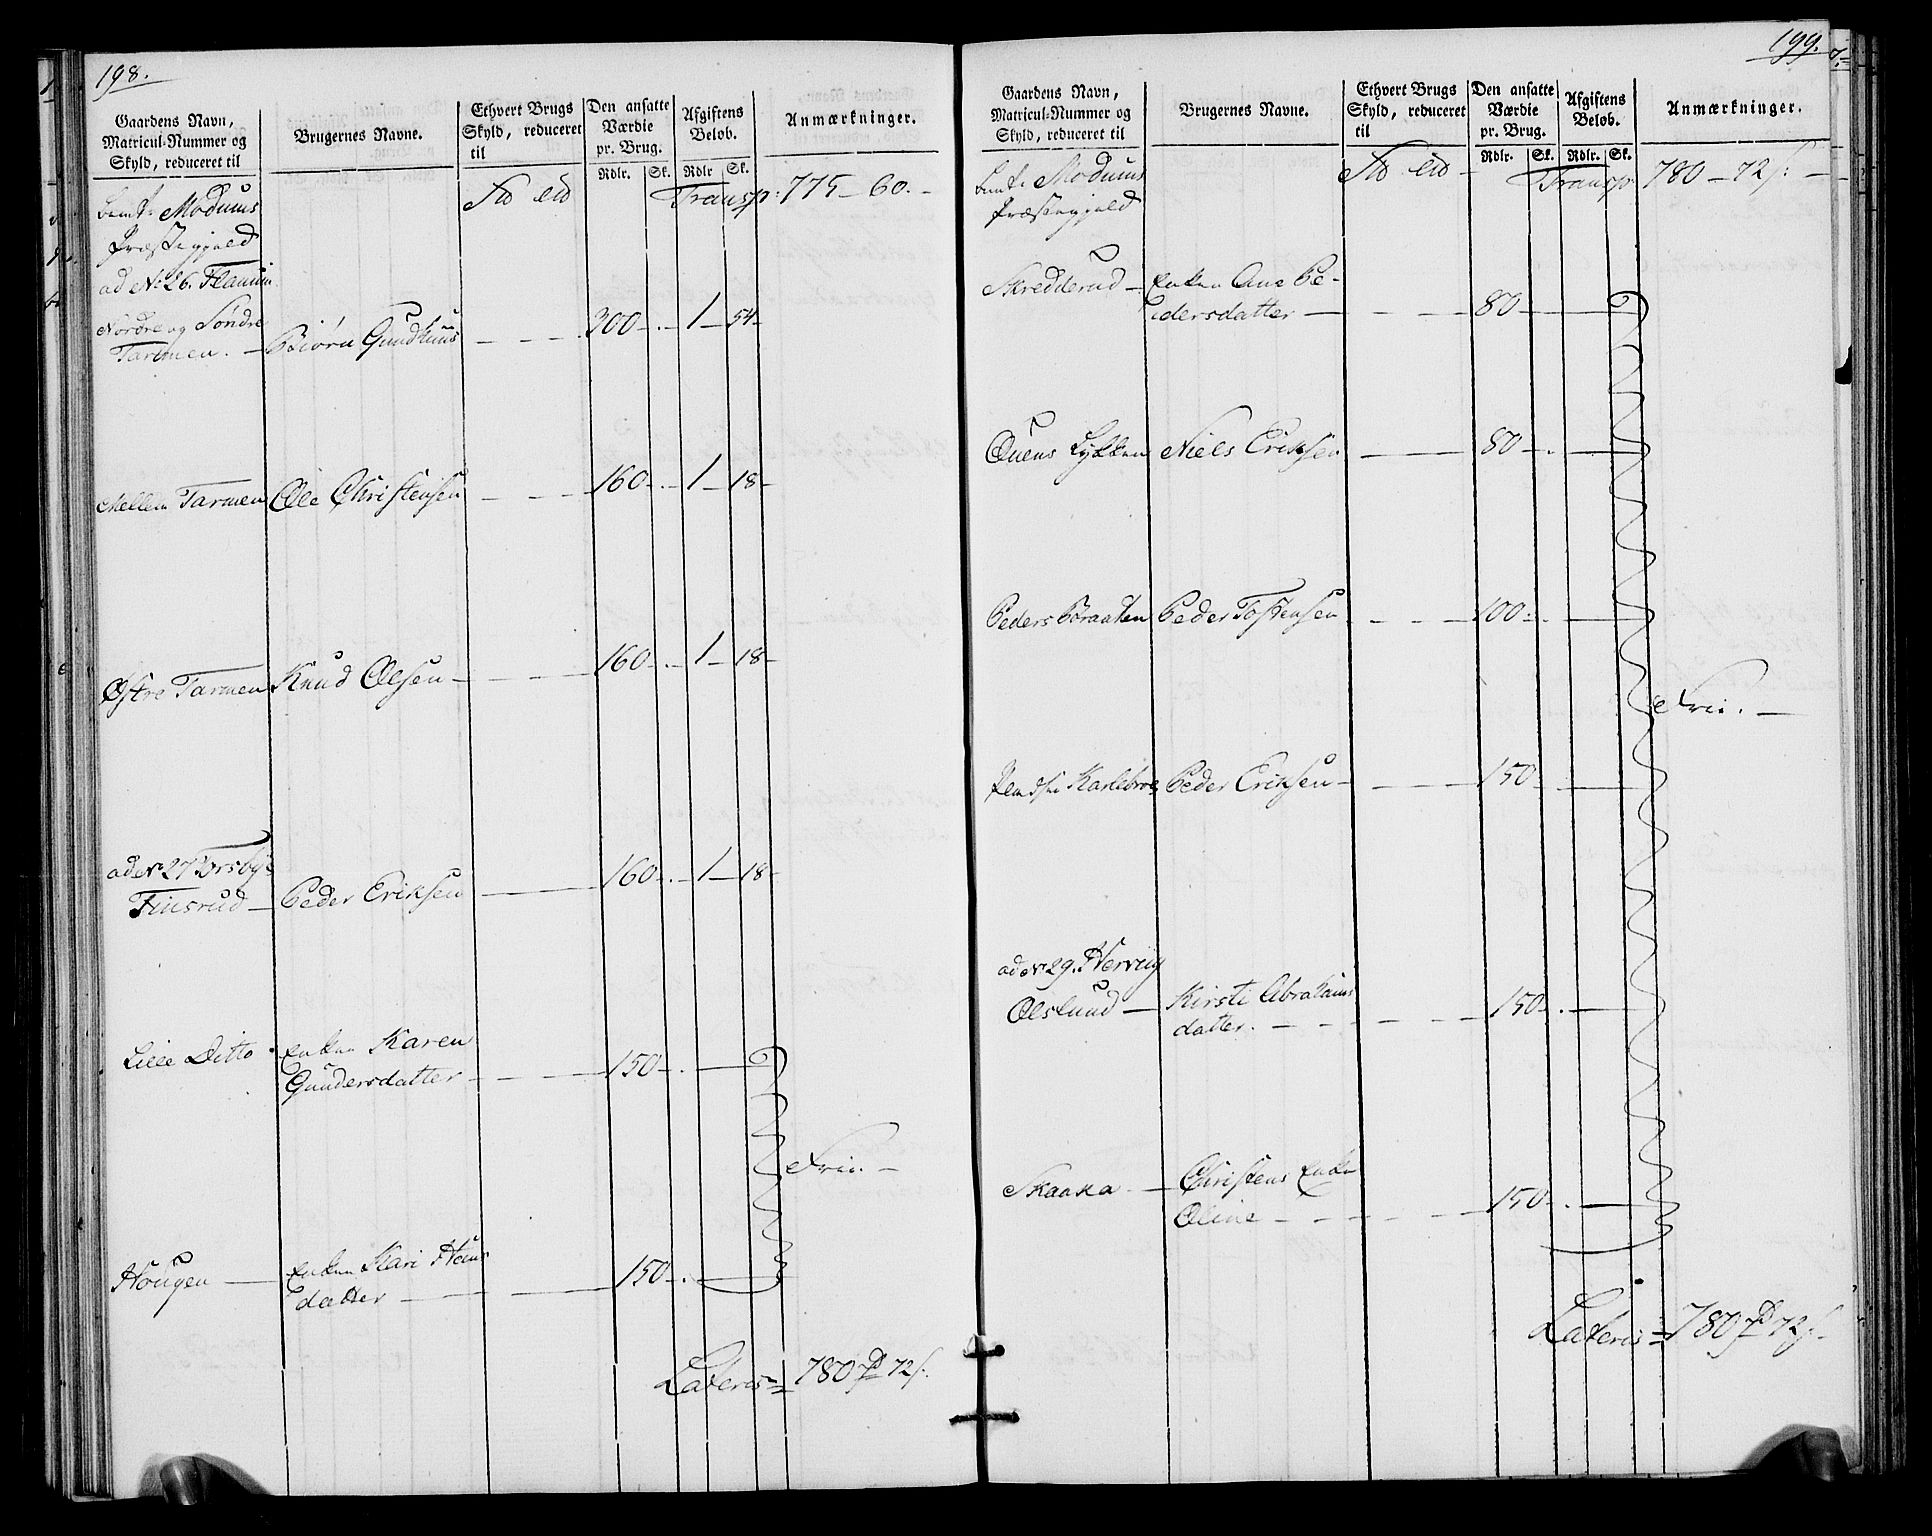 198.
Gaardens Navn,
Matricul-Nummer og
Skyld, reduceret til
Brugernes Navne.
Ethvert Brugs
Skyld, reduceret
til
Den ansatte
Værdie
pr. Brug.
Rdlr. Sk.
Afgiftens
Beløb.
Rdlr Sk.
Anmærkninger.
Modums
Præstegjield
Transp: 775 - 60. -
ad No 26.
Nordre og Søndre
Tarmen. - Biørn Gundhuus - - - 300 - . - 1 - 54 -
Mellem Tarmen Ole Christensen - - - 160 - . - 1 - 18 -
Østre Tarmen Knud Olsen - - - 160 - . - 1 - 18 -
ad No 27 Torsbye
Finsrud - Peder Eriksen - - - 160 - . - 1 - 18 -
Lille Ditto Enken Karen
Gundersdatter - - - 150 - . -
Frie. -
Hougen - Enken Kari
datter - - - 150 - . -
Lateris = 780 72
199.
Gaardens Navn,
Matricul-Nummer og
Skyld, reduceret til
Brugernes Navne.
Ethvert Brugs
Skyld, reduceret
til
Den ansatte
Værdie
pr. Brug.
Rdlr. Sk.
Afgiftens
Beløb.
Rdlr. Sk.
Anmærkninger.
Modums
Præstegjield
Transp 780 - 72
Skredderud - Enken Ane Pe-
dersdatter - - - 80 -
Lykken Niels Eriksen - - - 80 - . -
Peders Braaten Peder Tostensen - - - 100 - . -
Frie. -
Peder Eriksen - - - 150 -
ad No 29.
Oeslund - Kirsti Abrahams
datter. - - - 150 - . -
Skaaka - Christens Enke
Oline - - - 150 - . -
Lateris = 780 72